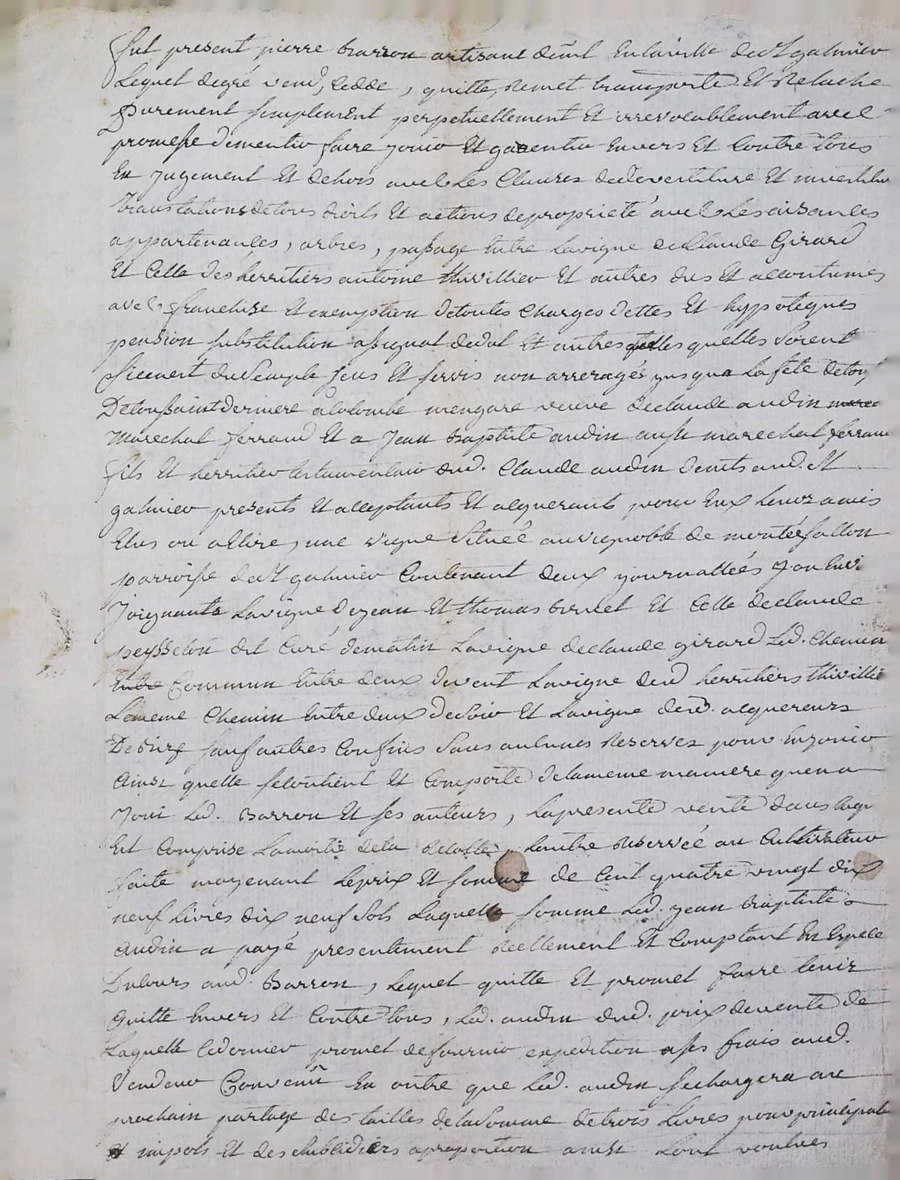 fut present pierre barron artisant demt en laville de st galmier
Lequel de gré vend, cedde, quitte, remet transporte Et Relache
Purement simplement perpetuellement Et irrevocablement avec
promesse d'en faire jouir Et garentir Envers Et Contre tous
En jugement Et dehors avec Les Clauzes de devertiture Et investiture
translations de tous droits Et actions de proprieté avec Les aisances
appartenances, arbres, passage Entre Lavigne de Claude Girard
Et Celle des herritiers antoine thivillier Et autres dus Et accoutumes
avec franchise Et exemption de toutes Charges dettes Et hyppoteques
pension substitution assignat de dot Et autres quelles quelles Soient
sicenest du Simple sens Et servis non arreragés jusqua La fete de tous
De toussaint derniere a Colombe mengare veuve de claude audin
marechal ferrand Et a Jean baptiste audin aussi marechal ferrant
fils Et herritier testamentaire dud. Claude audin demts aud. St
galmier presents Et acceptants Et acquerants pour Eux Leurs amis
Elus ou a Elire, une vigne Située au vignoble de montée Sallon
parroisse de st galmier Contenant deux journallées
Joignants Lavigne de jean Et thomas Et Celle de claude
peysselon dit Curé de matin Lavigne de claude girard Led. Chemin
Entre Commun Entre deux de vent Lavigne desd herritiers thivillier
Lememe Chemin Entre deux de Soir Et Lavigne desd. acquereurs
De bize sauf autres Confins Sans aucunes Reserves pour En jouir
Ainsi quelle se Contient Et Comporte de la meme maniere quen a
Joui Led. Barron Et ses auteurs, La presente vente dans laqu
Est Comprise La moitié de la Recolte, Lautre Reservée au Cultivateur
faite moyenant Le prix Et somme de Cent quatre vingt dix
neuf Livres dix neuf Sols Laquelle somme Led. jean Baptiste
Audin a payé presentement Reellement Et Comptant En Espece
Du Cours aud. Barron, Lequel quitte Et promet faire tenir
quitte Envers Et Contre tous, Led. audin dud. prix de vente de
Laquelle Ce dernier promet de fournir expedition a ses frais aud.
Vendeur Convenu En outre que Led. audin se chargera au
prochain partage des tailles de la Somme de trois Livres pour principal
Et impots Et des a proportion ainsi Lont voulues